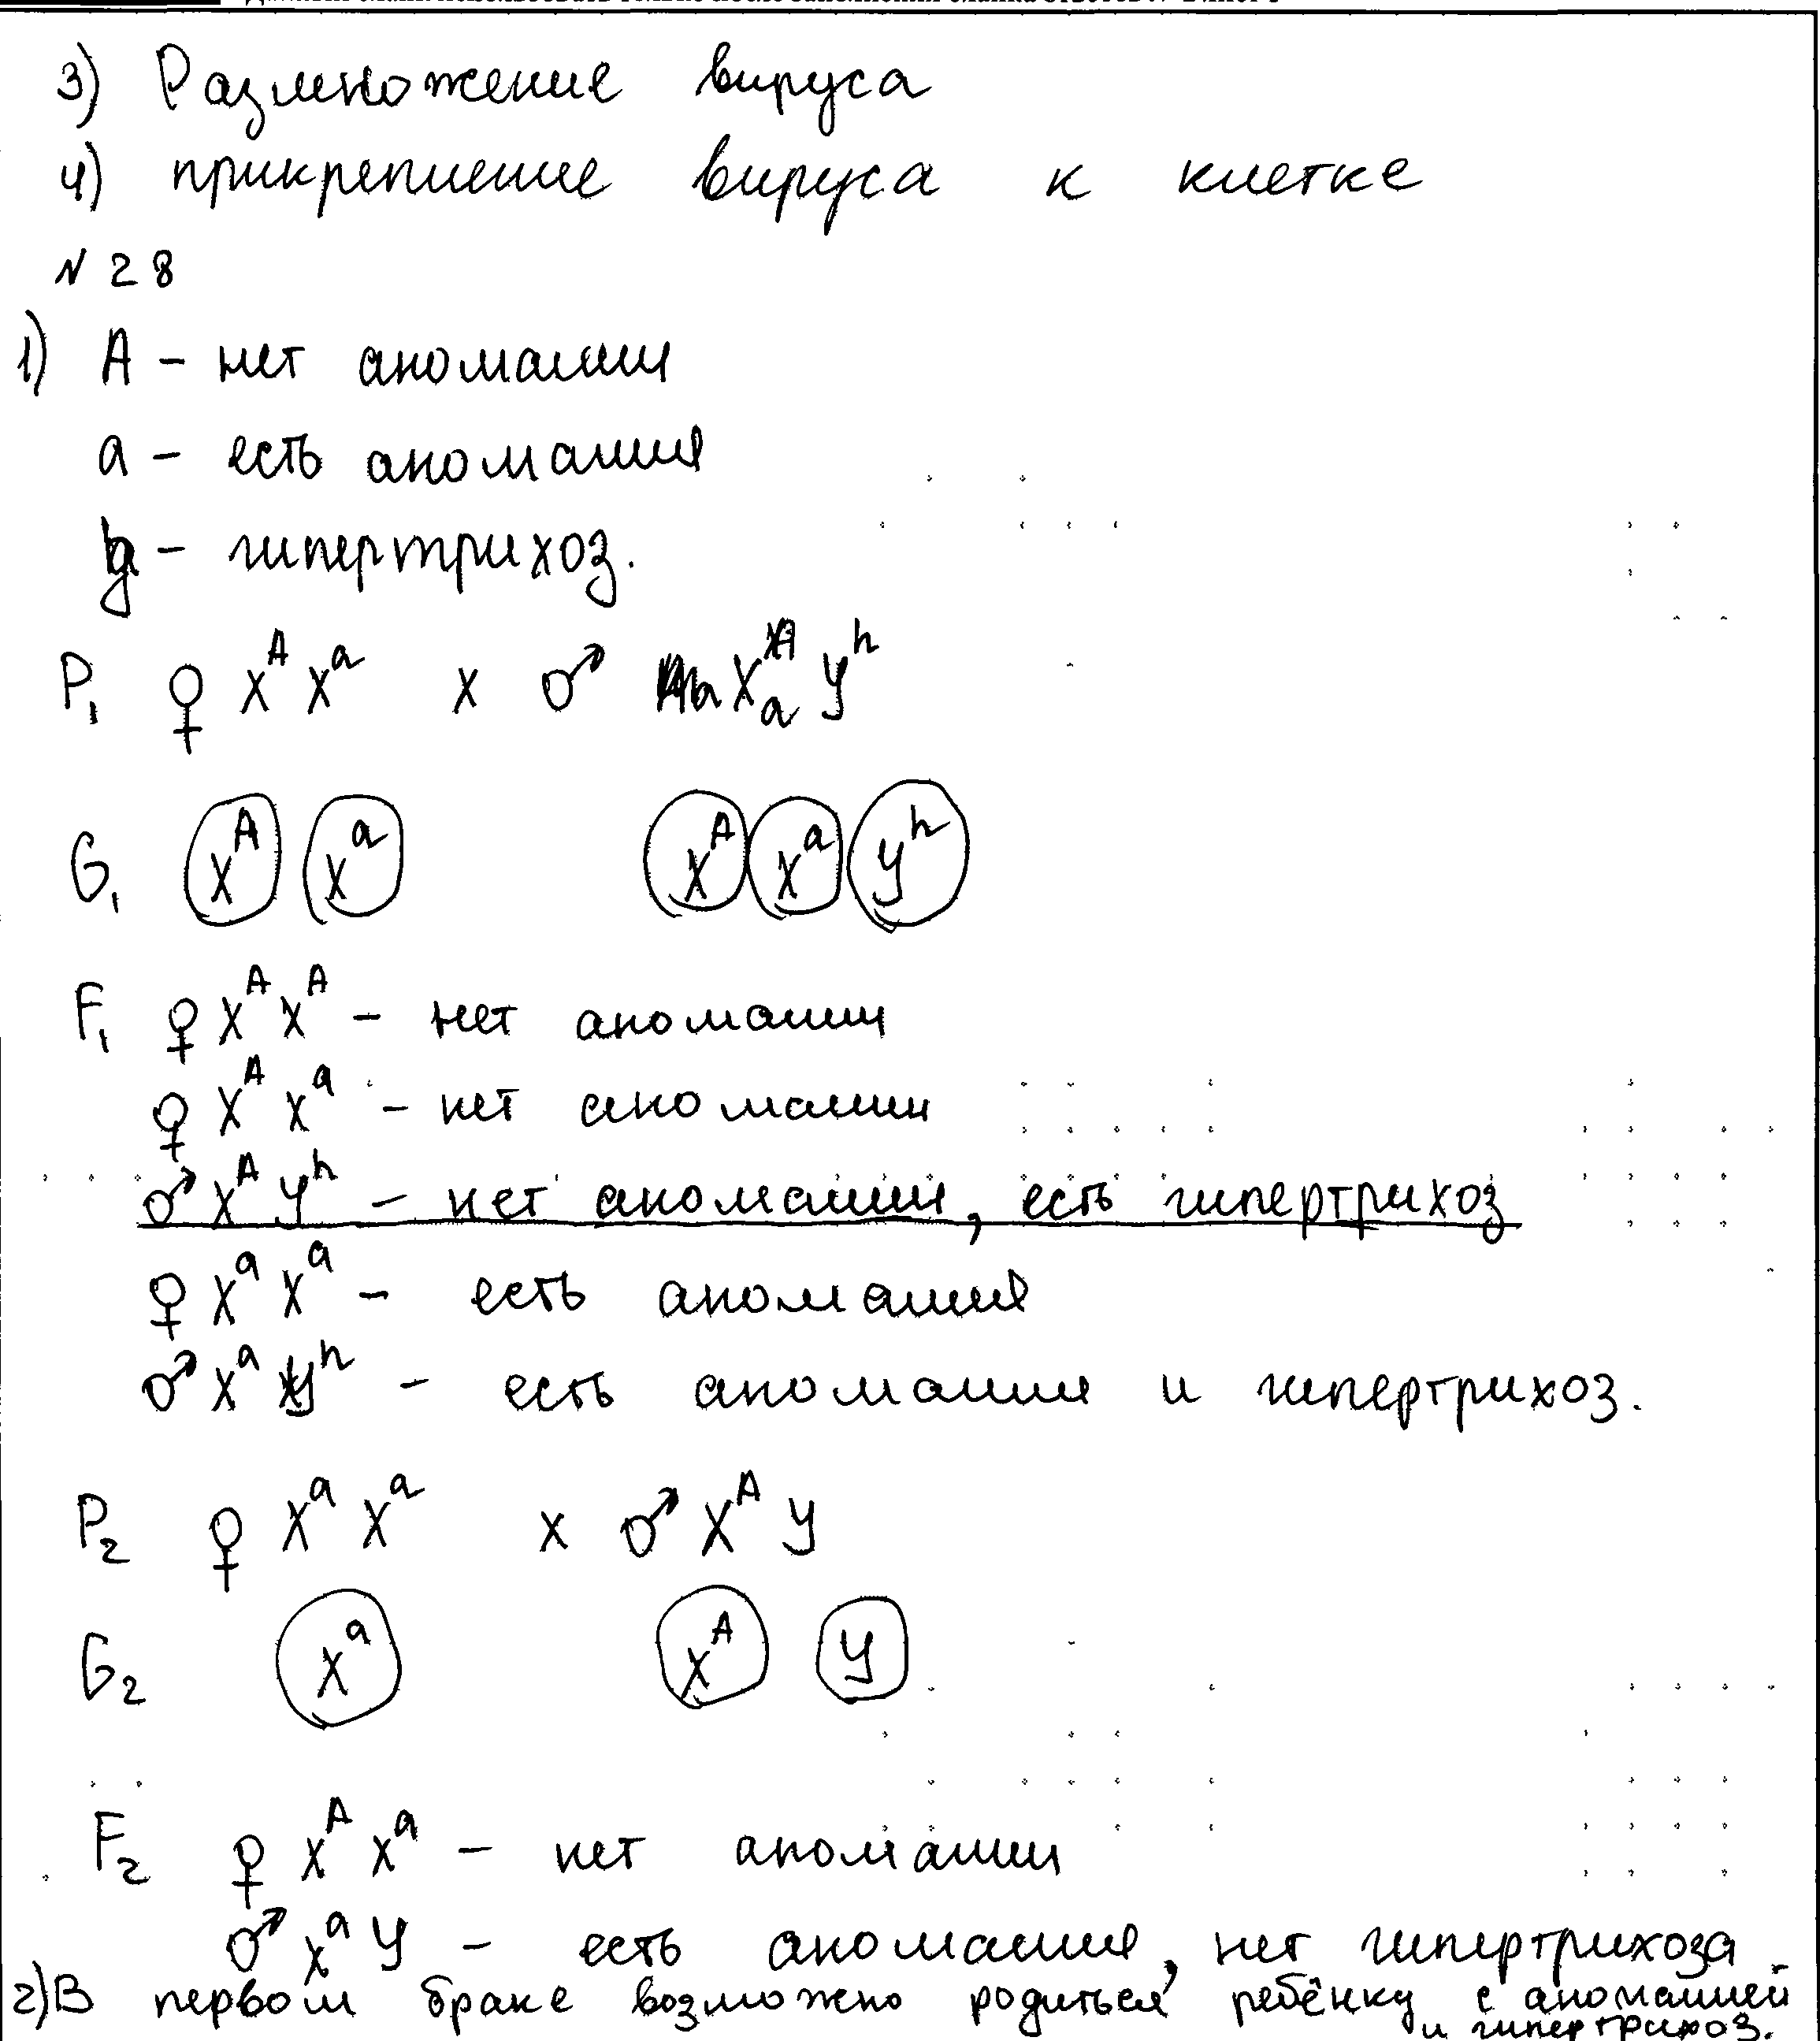 3) Размножение вируса
4) прикрепление вируса к клетке
N 28
1) A – нет аномалии
a – есть аномалия
– гипертрихоз.
P₁ ♀ Xᴬ Xᵃ x ♂ Yʰ
G₁ Xᴬ Xᵃ Xᴬ Xᵃ Yʰ
F₁ ♀ Xᴬ Xᴬ – нет аномалии
♀ Xᴬ Xᵃ – нет аномалии
♂ Xᴬ Yʰ – нет аномалии, есть гипертрихоз
♀ Xᵃ Xᵃ – есть аномалия
♂ Xᵃ Yʰ – есть аномалия и гипертрихоз.
P₂ ♀ Xᵃ Xᵃ x ♂ Xᴬ Y
G₂ Xᵃ Xᴬ Y
F₂ ♀ Xᴬ Xᵃ – нет аномалии
♂ Xᵃ Y – есть аномалия, нет гипертрихоза.
2) В первом браке возможно родиться ребёнку с аномалией
и гипертрихоз.